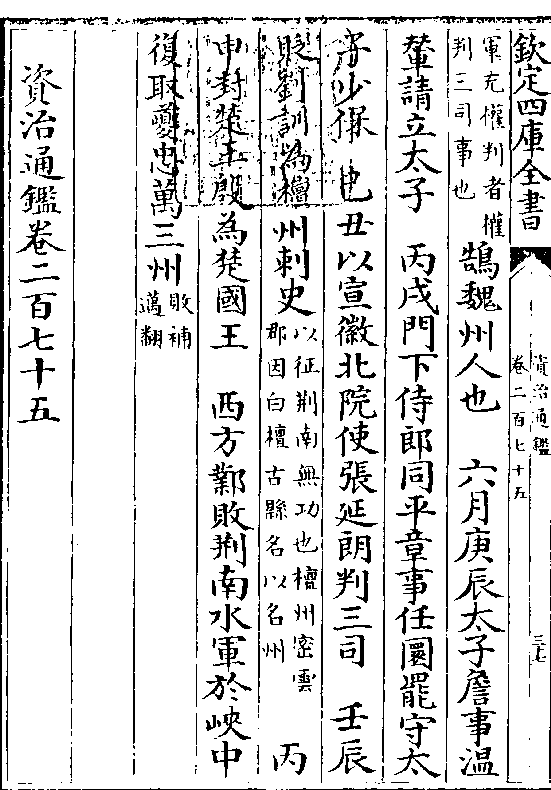 欽定四庫全書
資治通鑑
卷二百七十五
三十七
軍充權判者權
判三司事也
鵠魏州人也 六月庚辰太子詹事温
輦請立太子 丙戌門下侍郎同平章事任圜罷守太
子少保 己丑以宣徽北院使張延朗判三司 壬辰
貶劉訓為檀州刺史
以征荆南無功也檀州密雲
郡因白檀古縣名以名州
丙
申封楚王殷為楚國王 西方鄴敗荆南水軍於峽中
復取夔忠萬三州
敗補
邁翻
資治通鑑卷二百七十五